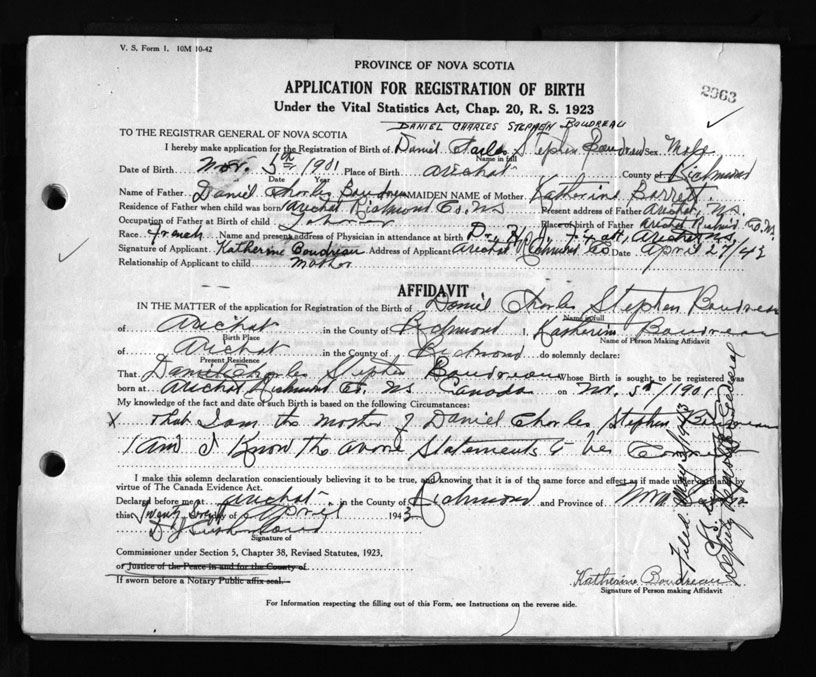 V. S. Form 1. 10M 10-42
PROVINCE OF NOVA SCOTIA
APPLICATION FOR REGISTRATION OF BIRTH
2963
Under the Vital Statistics Act, Chap. 20, R. S. 1923
DANIEL CHARLES STEPHEN BOUDREAU
TO THE REGISTRAR GENERAL OF NOVA SCOTIA
I hereby make application for the Registration of Birth of Daniel Charles Stephen Boudreau Sex Male
Name in full
Date of Birth Nov. 5th 1901 Place of Birth Arichat County of Richmond
Date Year
Name of Father Daniel Charles Boudreau MAIDEN NAME of Mother Katherine Barrett
Residence of Father when child was born Arichat Richmond Co. N.S. Present address of Father Arichat, N.S.
Occupation of Father at Birth of child Laborer Place of Birth of Father Arichat Richmd Co. N.S.
Race French Name and present address of Physician in attendance at birth Dr. Arichat N.S.
Signature of Applicant Katherine Boudreau Address of Applicant Arichat Richmond Co Date April 27/43
Relationship of Applicant to child Mother
AFFIDAVIT
IN THE MATTER of the application for Registration of the Birth of Daniel Charles Stephen Boudreau
Name in full
of Arichat in the County of Richmond I, Katherine Boudreau
Birth Place Name of Person Making Affidavit
of Arichat in the County of Richmond do solemnly declare:
Present Residence
That Daniel Charles Stephen Boudreau Whose Birth is sought to be registered was
born at Arichat, Richmond Co. N.S. Canada on Nov. 5th/1901
My knowledge of the fact and date of such Birth is based on the following Circumstances:
X That I am the mother of Daniel Charles Stephen Boudreau
and I Know the above Statements to be Correct
I make this solemn declaration conscientiously believing it to be true, and knowing that it is of the same force and effect as if made under oath and by
virtue of The Canada Evidence Act.
Declared before me at Arichat in the County of Richmond and Province of Nova Scotia
this Twenty Seventh of April 1943
Signature of
Commissioner under Section 5, Chapter 38, Revised Statutes, 1923,
or Justice of the Peace in and for the County of
If sworn before a Notary Public affix seal.
Katherine Boudreau
Signature of Person making Affidavit
For Information respecting the filling out of this Form, see Instructions on the reverse side.
Filed May 3/1943
Deputy Registrar General